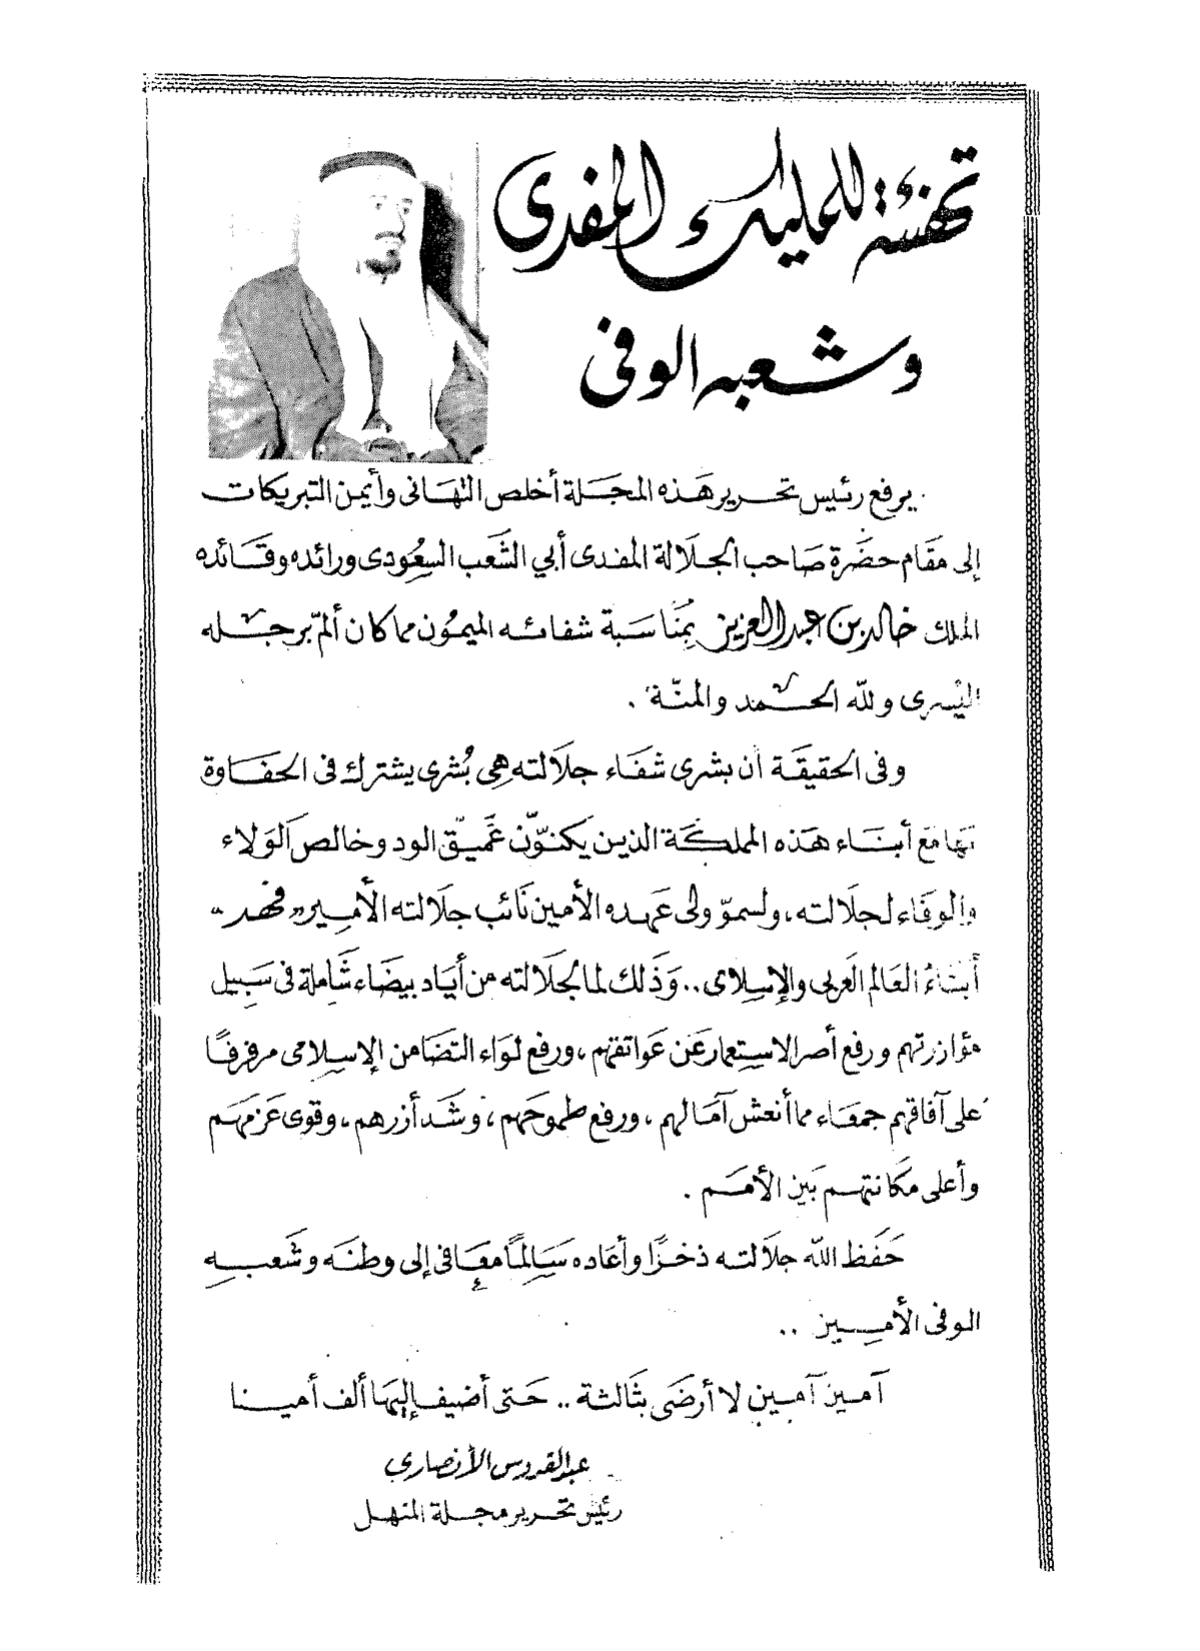 تهنئة للمليك المفدى
وشعبه الوفى
يرفع رئيس تحرير هذه المجلة أخلص التهانى وأيمن التبريكات
إلى مقام حضرة صاحب الجلالة المفدى أبي الشعب السعودى ورائده وقائده
الملك خالد بن عبد العزيز بمناسبة شفائه الميمون مما كان ألمّ برجله
اليسرى ولله الحمد والمنّة .
وفى الحقيقة أن بشرى شفاء جلالته هى بُشرى يشترك فى الحفاوة
بها مع أبناء هذه المملكة الذين يكنّون عميق الود وخالص الولاء
والوفاء لجلالته، ولسموّ ولى عهده الأمين نائب جلالته الأمير «فهد»
أبناءُ العالم العربى والإسلامى .. وذلك لما لجلالته من أياد بيضاء شاملة فى سبيل
مؤازرتهم ورفع أصر الاستعمار عن عواتقهم، ورفع لواء التضامن الإسلامى مرفرفًا
على آفاقهم جمعاء مما أنعش آمالهم، ورفع طموحهم، وشد أزرهم، وقوى عزمهم
وأعلى مكانتهم بين الأمم .
حفظ الله جلالته ذخرًا وأعاده سالمًا معافى إلى وطنه وشعبه
الوفى الأمين ..
آمين آمين لا أرضى بثالثة .. حتى أضيف إليها ألف أمينا
عبد القدوس الأنصاري
رئيس تحرير مجلة المنهل